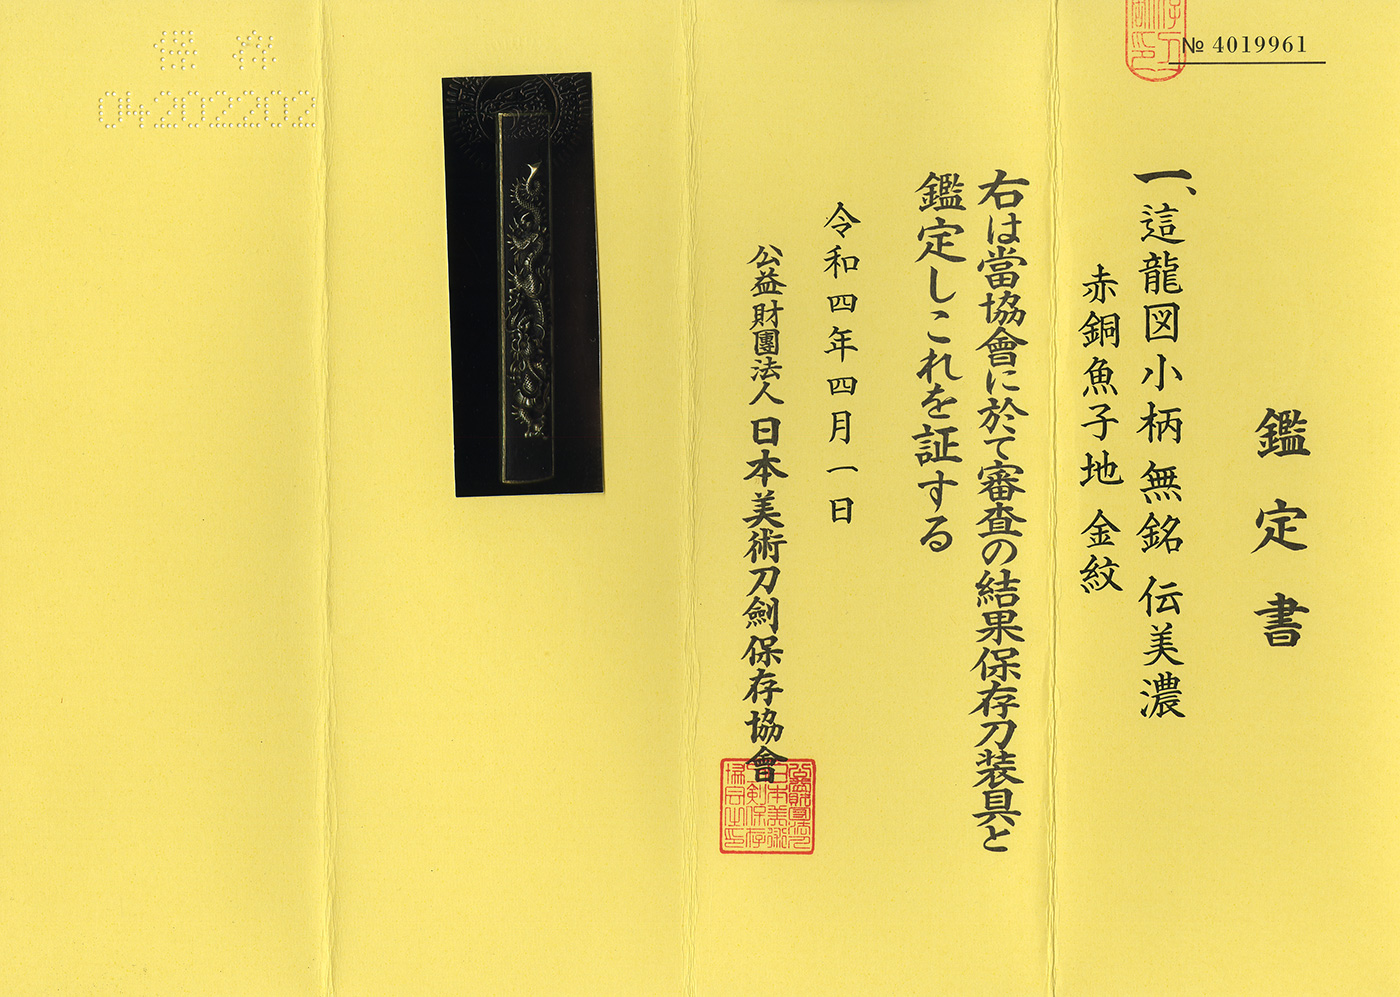 № 4019961
鑑定書
一、這龍図小柄 無銘 伝美濃
赤銅魚子地 金紋
右は當協會に於て審査の結果保存刀装具と
鑑定しこれを証する
令和四年四月一日
公益財團法人 日本美術刀劍保存協會
保存
04202202